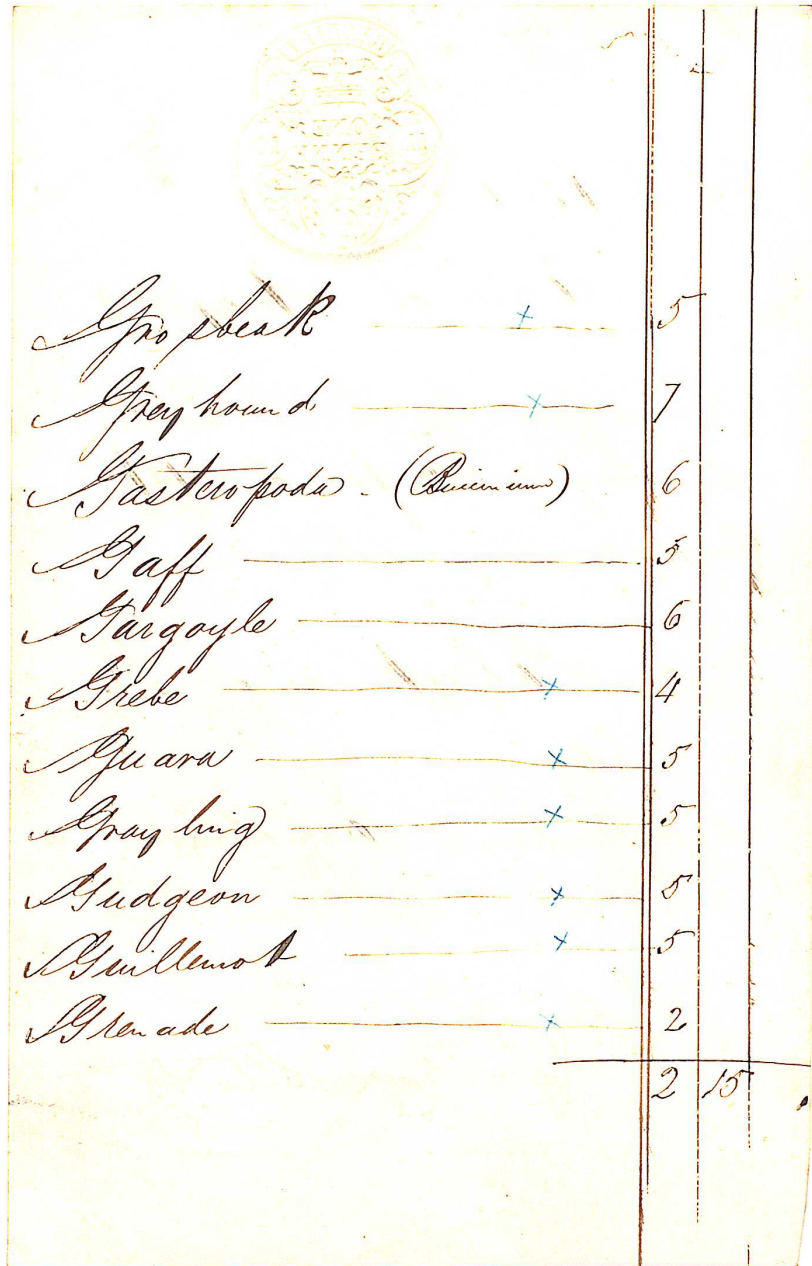 Grosbeak × 5
Greyhound × 7
Gasteropoda - (Buccinum) 6
Gaff 5
Gargoyle 6
Grebe × 4
Guara × 5
Grayling × 5
Gudgeon × 5
Guillemot × 5
Grenade × 2
2 15